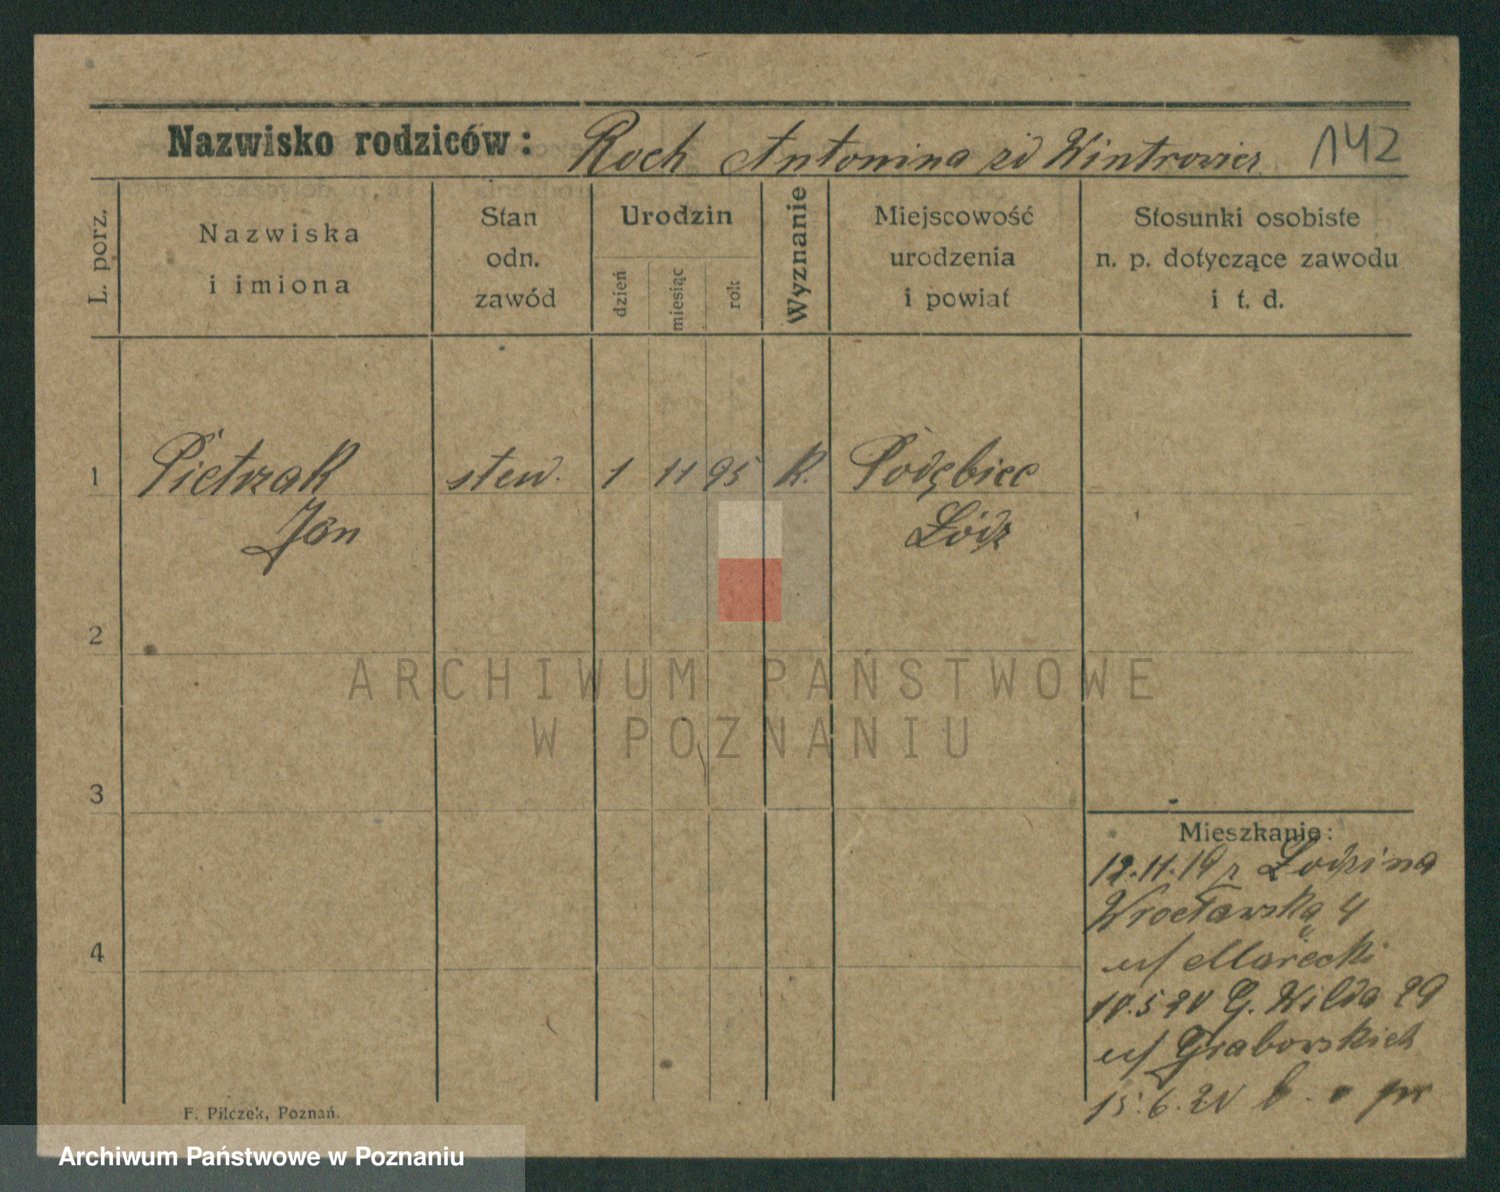 Nazwisko rodziców: Roch Antonina zd Wintrowicz 142
L. porz.
Nazwiska
i imiona
Stan
odn.
zawód
Urodzin
dzień
miesiąc
rok
Wyznanie
Miejscowość
urodzenia
i powiat
Stosunki osobiste
n. p. dotyczące zawodu
i t. d.
1 Pietrzak sten. 1 11 95 K. Podębiec
Jan Łódź
2
ARCHIWUM PAŃSTWOWE
W POZNANIU
3
Mieszkanie:
12.11.19 z Łodzi na
Wrocławską 4
u/ Marecki
4
10.5 20 G. Wilda 29
u/ Grabowskich
15.6.20
F. Pilczek, Poznań.
Archiwum Państwowe w Poznaniu